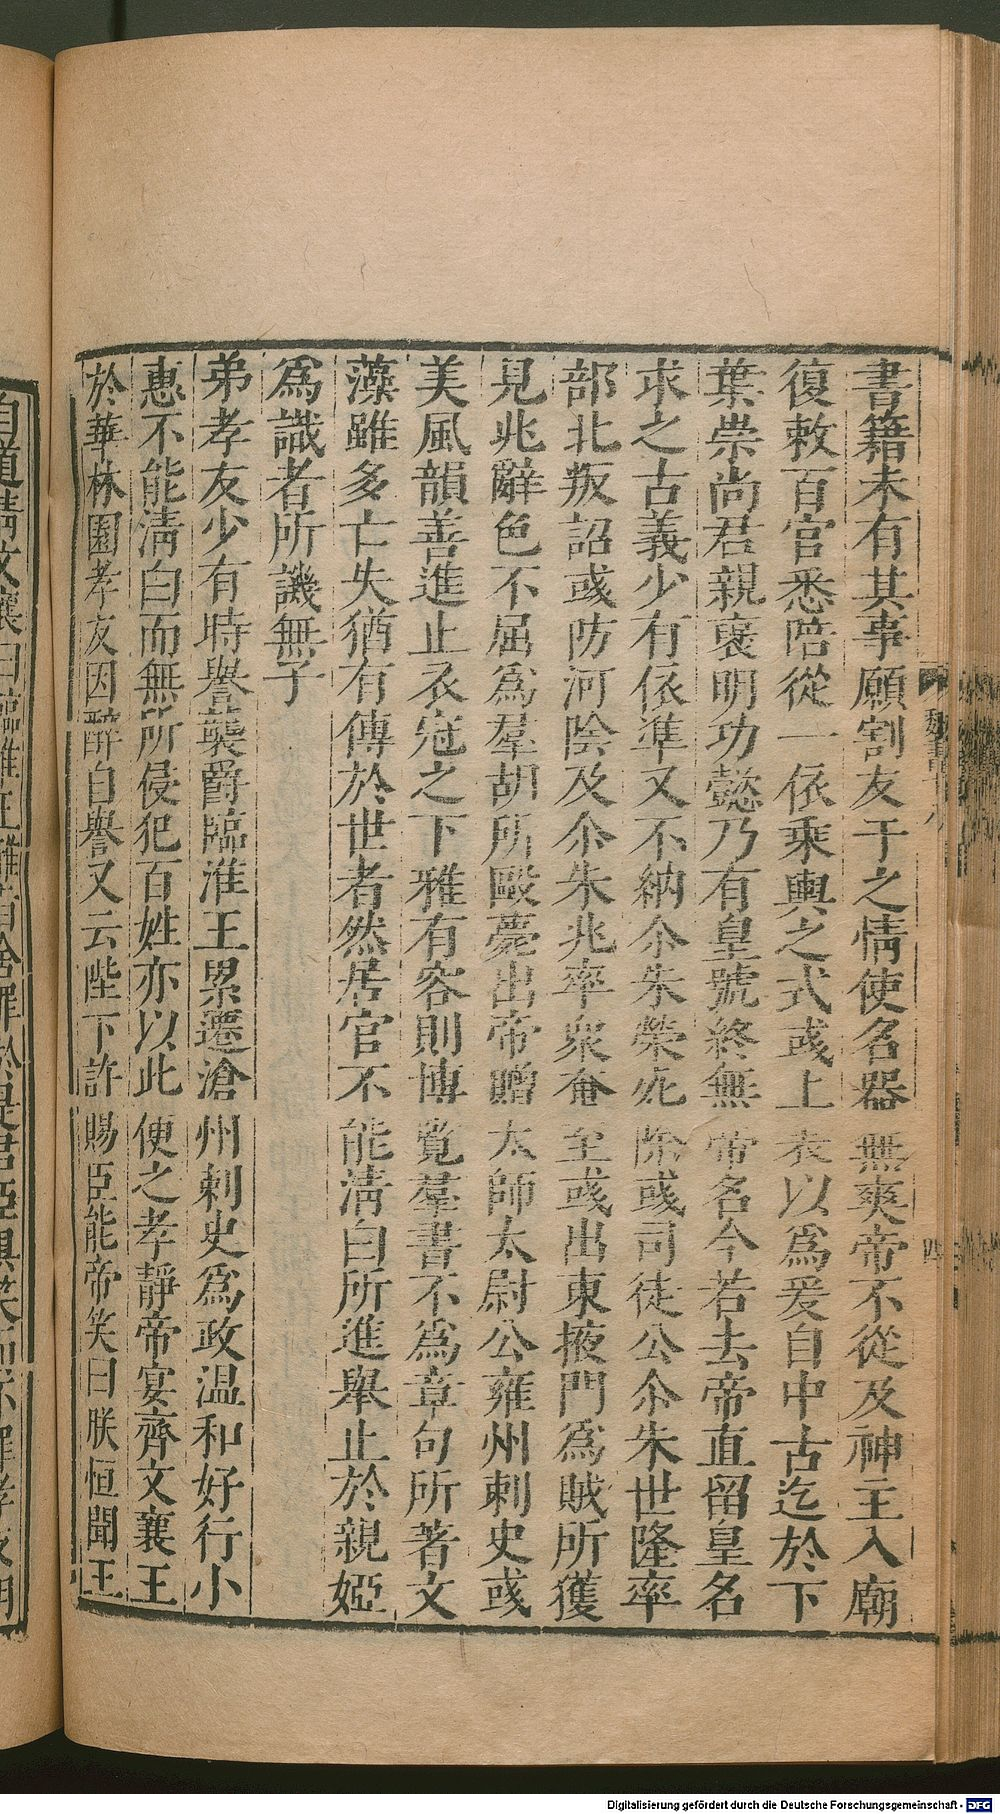 書籍未有其事願割友于之情使名器無爽帝不從及神主入廟
復敕百官悉陪從一依乘輿之式彧上表以為爰自中古迄於下
葉崇尚君親襃明功懿乃有皇號終無帝名今若去帝直留皇名
求之古義少有依準又不納尒朱榮死除彧司徒公尒朱世隆率
部北叛詔彧防河陰及尒朱兆率衆奄至彧出東掖門為賊所獲
見兆辭色不屈為羣胡所毆薨出帝贈太師太尉公雍州刺史彧
美風韻善進止衣冠之下雅有容則博覽羣書不為章句所著文
藻雖多亡失猶有傳於世者然居官不能清白所進舉止於親婭
為識者所譏無子
弟孝友少有時譽襲爵臨淮王累遷滄州刺史為政温和好行小
惠不能清白而無所侵犯百姓亦以此便之孝靜帝宴齊文襄王
於華林園孝友因醉自譽又云陛下許賜臣能帝笑曰朕恒聞王
自道清文襄曰臨淮王雅旨舍罪於是君臣俱笑而不罪孝友明
魏書十八
四
Digitalisierung gefördert durch die Deutsche Forschungsgemeinschaft - DFG